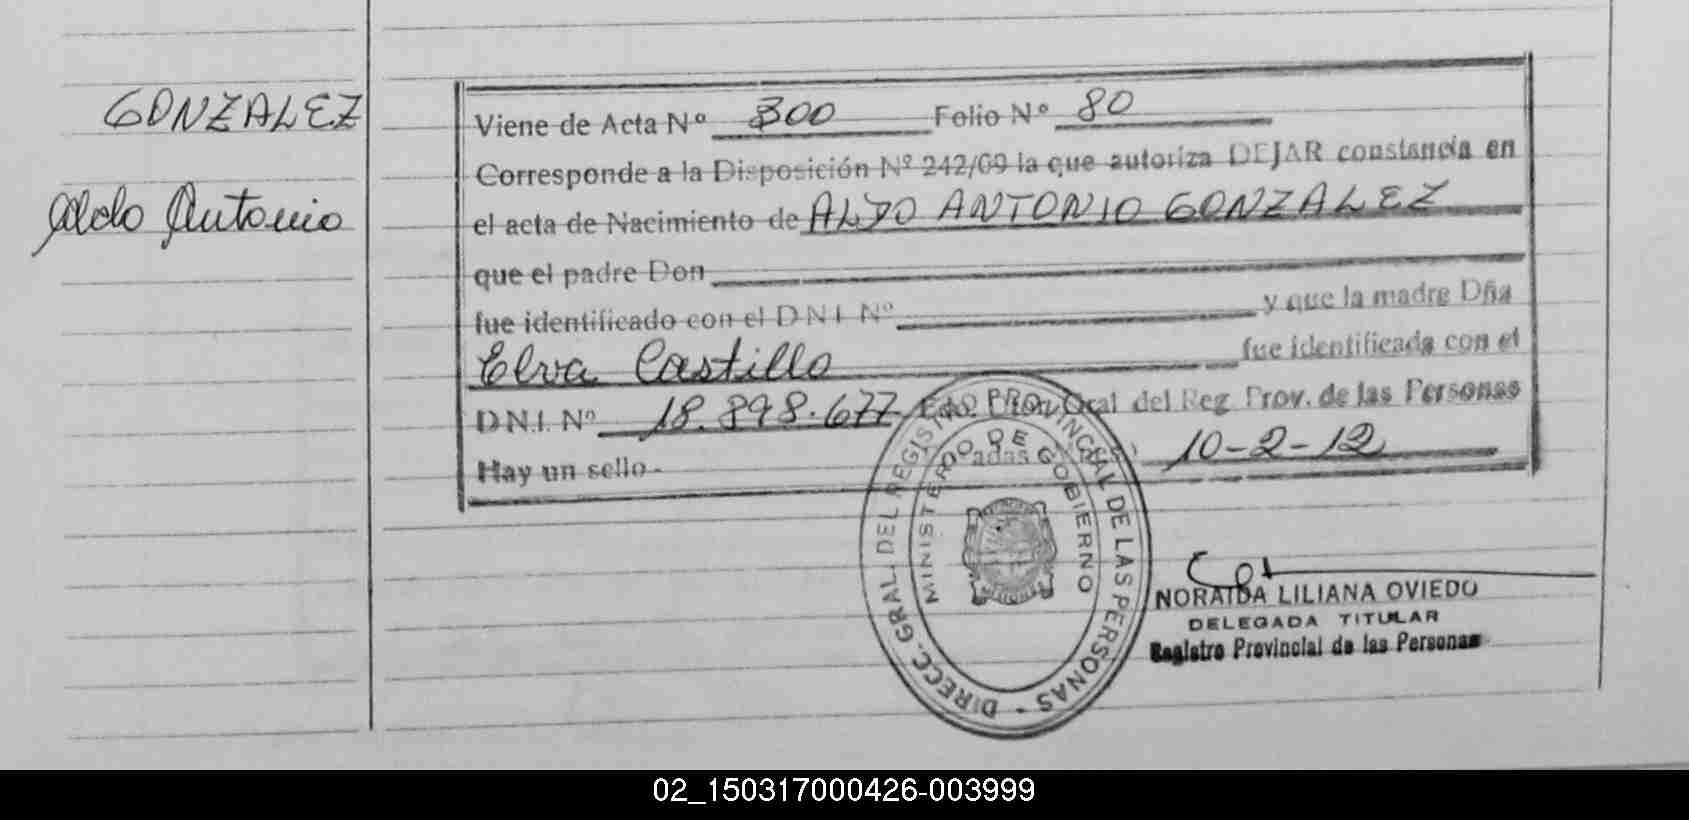 GONZALEZ
Aldo Antonio
Viene de Acta Nº 300 Folio Nº 80
Corresponde a la Disposición Nº 242/09 la que autoriza DEJAR constancia en
el acta de Nacimiento de ALDO ANTONIO GONZALEZ
que el padre Don
fue identificado con el D N I Nº y que la madre Dña
Elva Castillo fue identificada con el
D.N.I. Nº 18.898.677 Fdo. Dir. Gral del Reg. Prov. de las Personas
Hay un sello- 10-2-12
DIRECC. GRAL. DEL REGISTRO PROVINCIAL DE LAS PERSONAS -
MINISTERIO DE GOBIERNO
NORAIDA LILIANA OVIEDO
DELEGADA TITULAR
Registro Provincial de las Personas
02_150317000426-003999